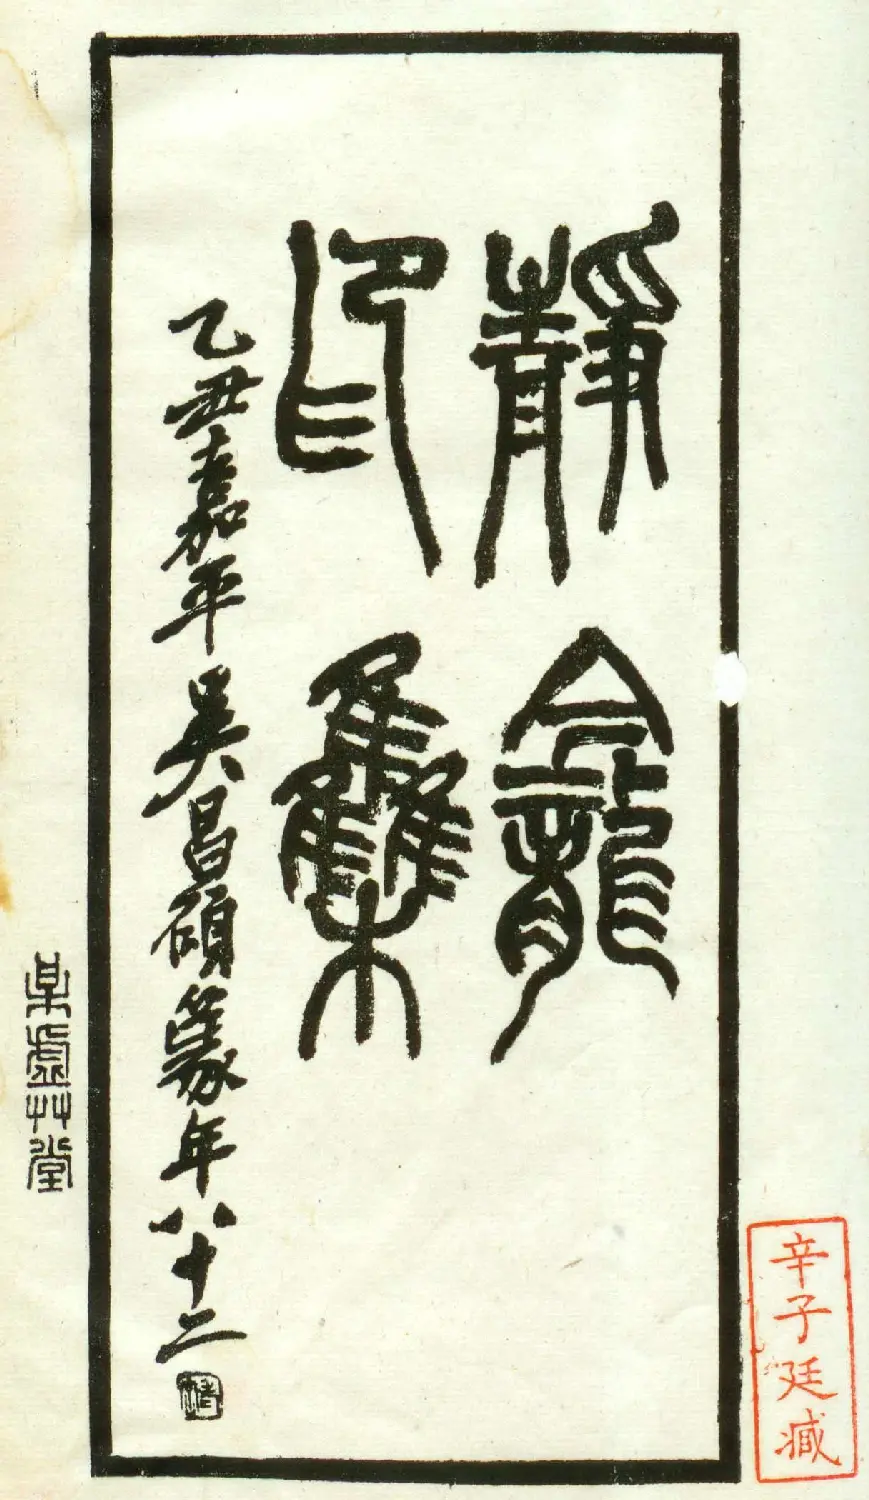 靜龕
印雧
乙丑嘉平吳昌碩篆年八十二
某虛艸堂
辛子廷臧